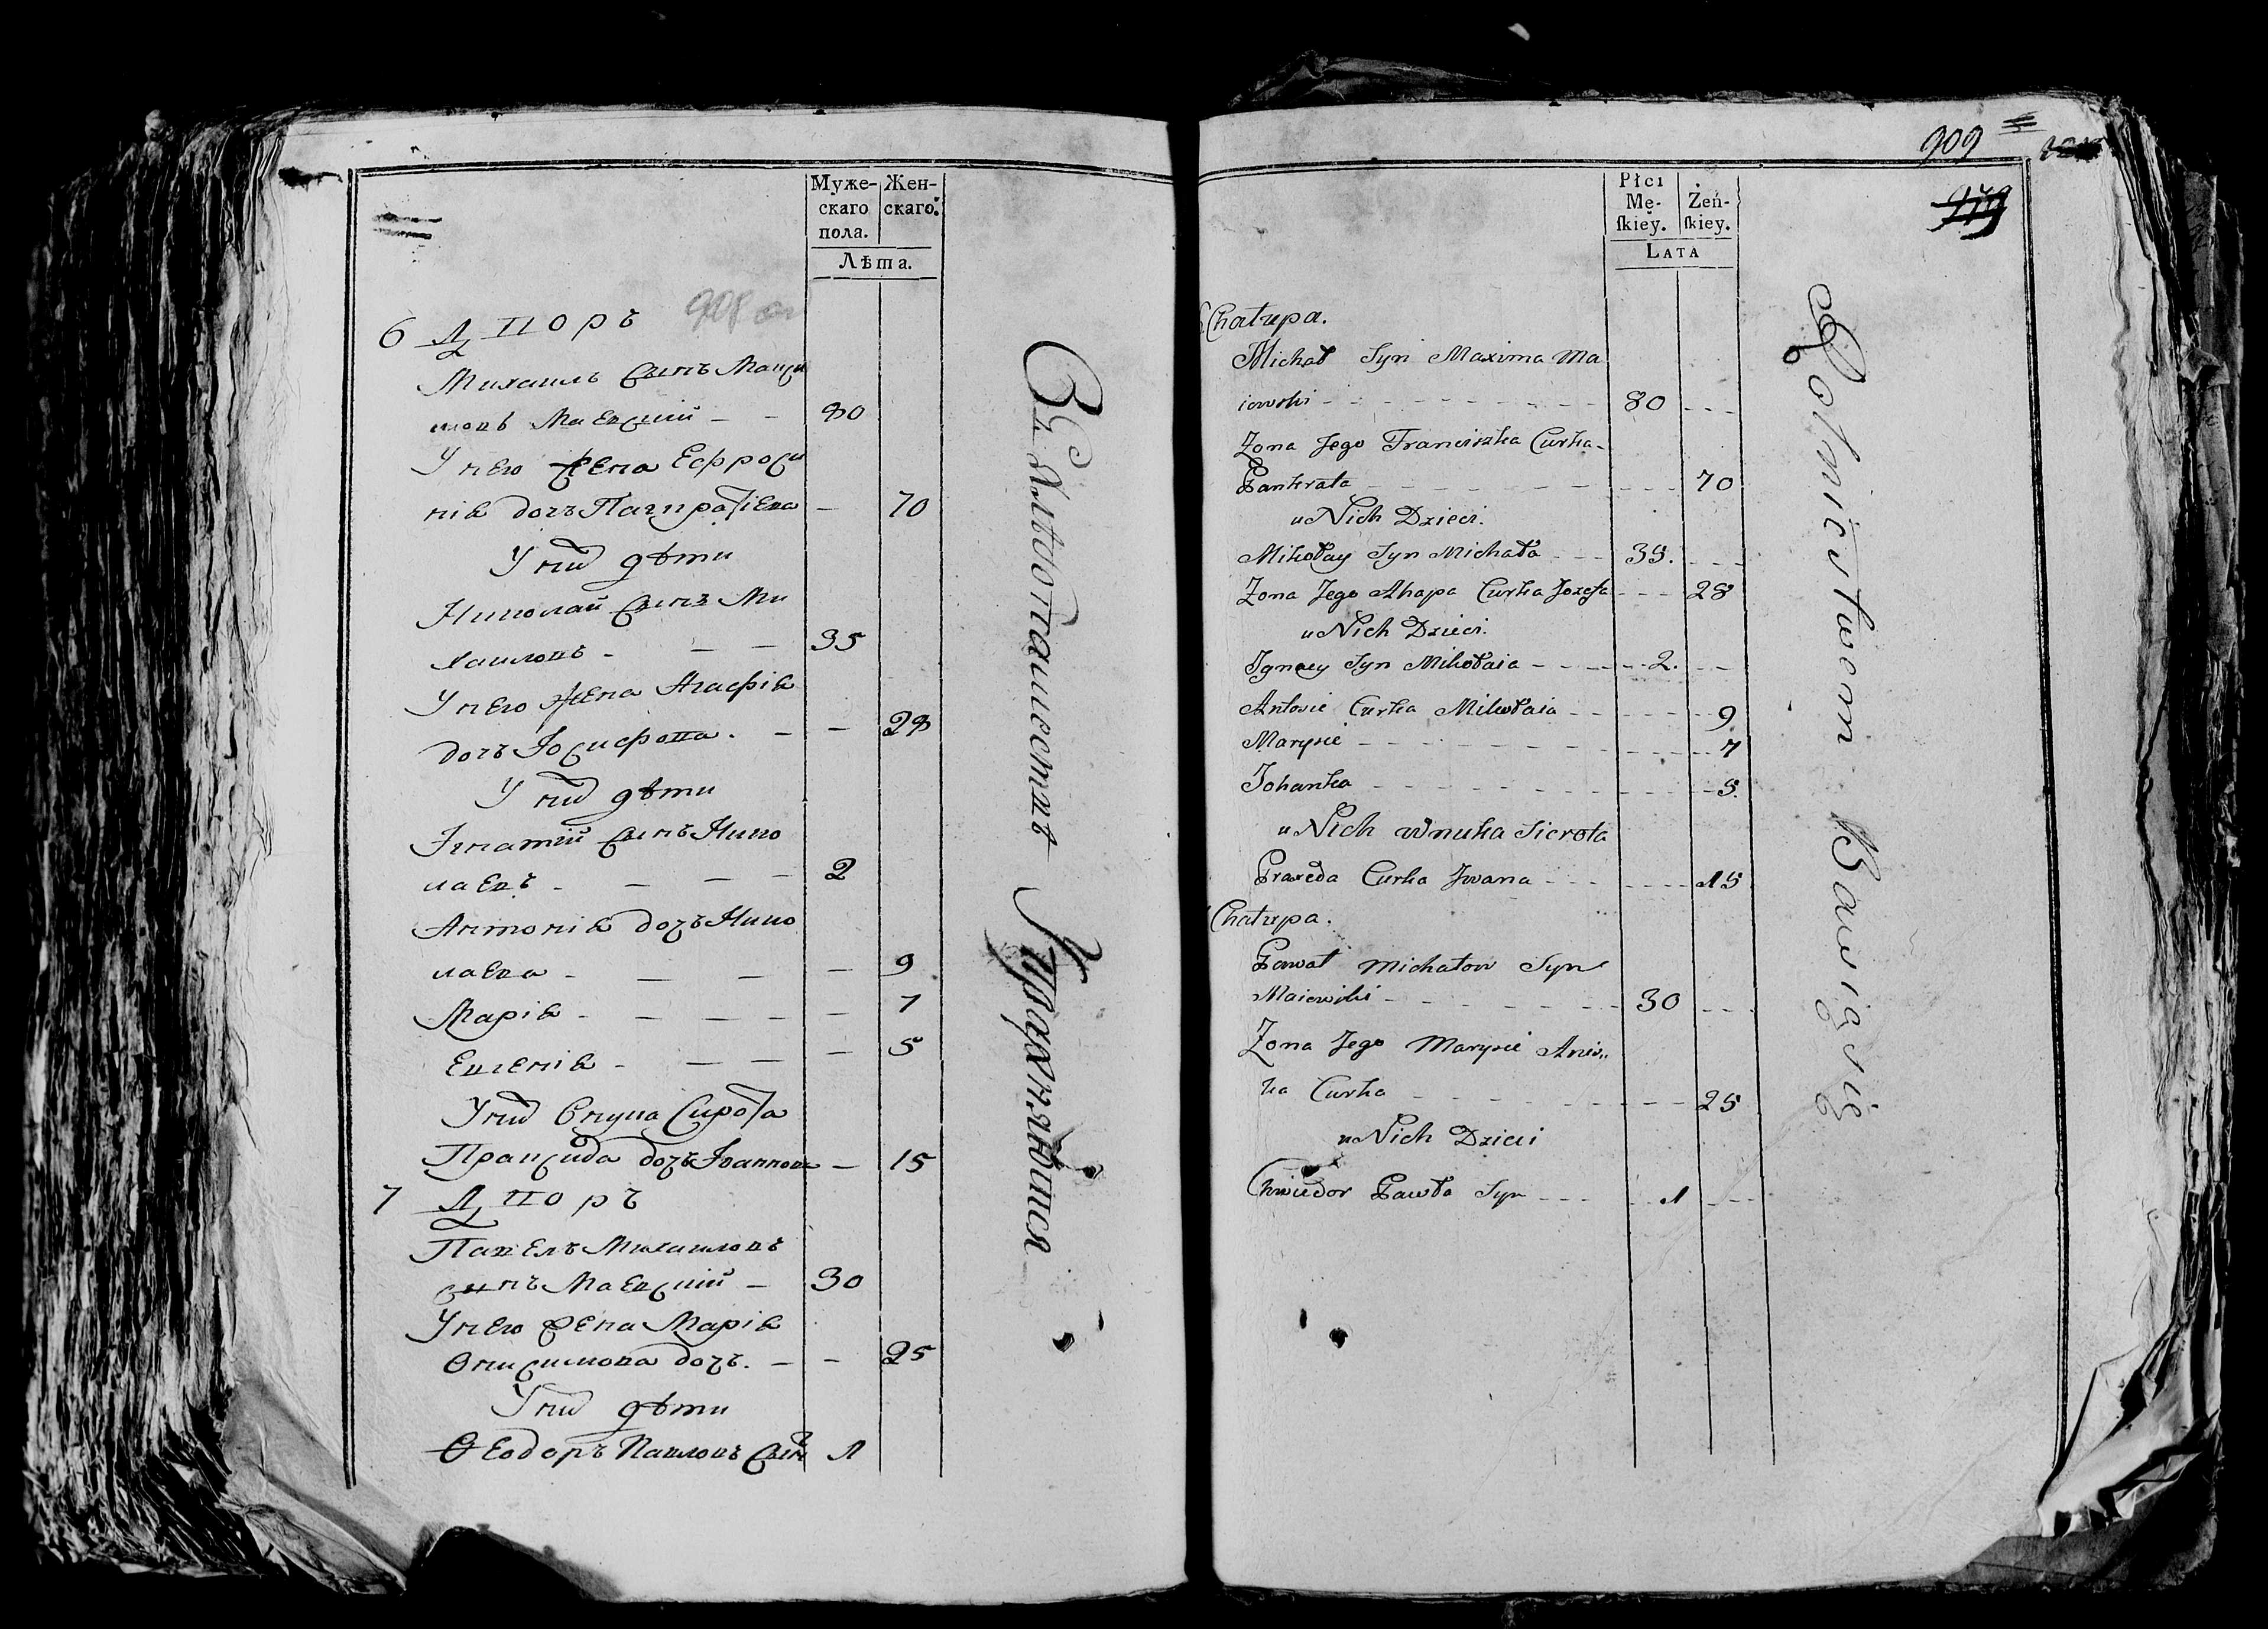 Муже-
скаго
пола.
Жен-
скаго.
Лѣта.
908 об
6 Дворъ
Михаилъ сынъ Макси
мовъ Маевский – – 80
У него жена Ефроси
ния дочъ Панкратіева – 70
У них дѣти
Николай сынъ Ми
хаиловъ - – – 35
У него жена Агафия
дочъ Іосифова. – – 28
У них дѣти
Игнатий сынъ Нико
лаевъ - – – – 2
Антония дочъ Нико
лаева - – – – 9
Мария - – – – – 7
Евгения - – – – 5
У них внука сирота
Праксида дочъ Іоаннова – 15
7 Дворъ
Павелъ Михаиловъ
сынъ Маевский – 30
У него жена Мария
Онисимова дочъ. – – 25
У них дѣти
Ѳеодоръ Павловъ сынъ 1
Въ хлебопашествѣ Упражняются
909
Płci
Mę-
ſkiey.
Żeń-
ſkiey.
LATA
Chałupa.
Michał Syn Maxima Ma
iewski - - - 80 - - -
Zona Jego Franciszka Curka
Pankrata - - - 70
u Nich Dzieci.
Mikołay Syn Michała - - - 35. - - -
Zona Jego Ahapa Curka Jozefa - - - 28
u Nich Dzieci.
Jgnacy Syn Mikołaia - - - 2. - -
Antosie Curka Mikołaia - - - 9
Marysie - - - 7
Johanka - - - 5.
u Nich wnuka Sierota
Praxeda Curka Jwana - - - 15
Chałupa.
Paweł Michałow Syn
Maiewski - - - 30 - - -
Zona Jego Marysie Anis,,
ka Curka - - - 25
u Nich Dzieci
Chwiedor Pawła Syn - - - 1 - - -
Rolnictwem Bawią się